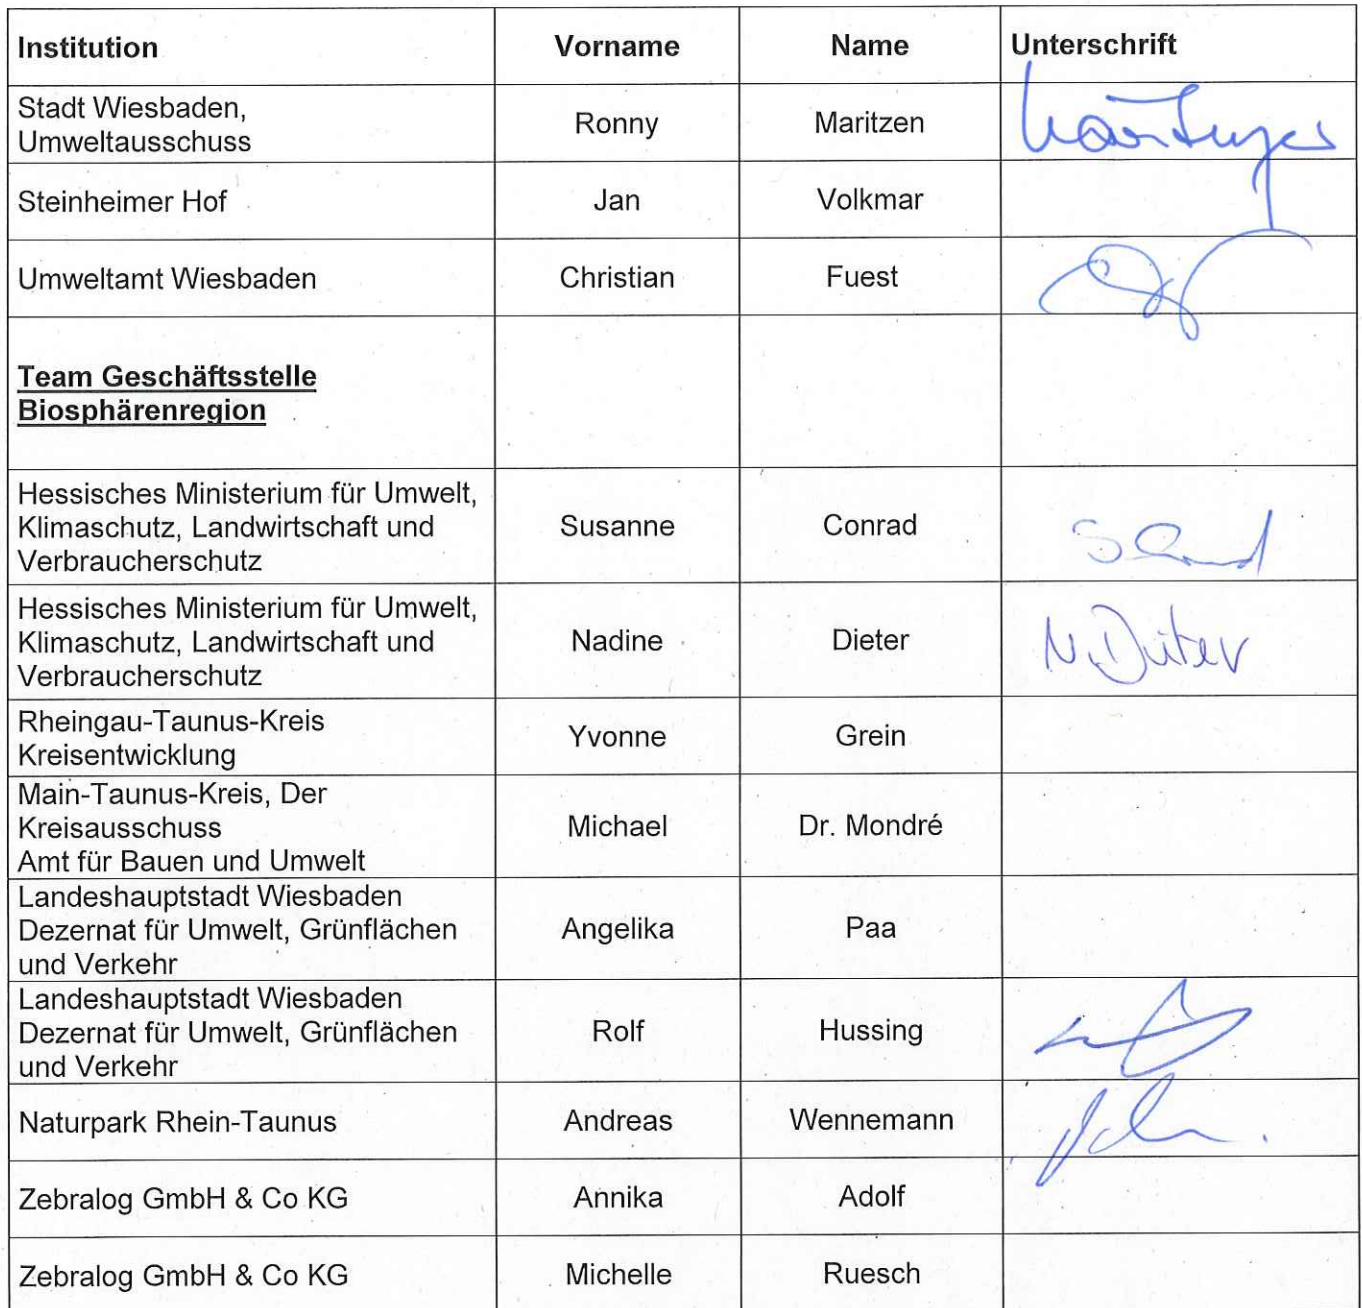 Institution Vorname Name Unterschrift
Stadt Wiesbaden,
Umweltausschuss Ronny Maritzen
Steinheimer Hof Jan Volkmar
Umweltamt Wiesbaden Christian Fuest
Team Geschäftsstelle
Biosphärenregion
Hessisches Ministerium für Umwelt,
Klimaschutz, Landwirtschaft und Susanne Conrad
Verbraucherschutz
Hessisches Ministerium für Umwelt,
Klimaschutz, Landwirtschaft und Nadine Dieter N. Dieter
Verbraucherschutz
Rheingau-Taunus-Kreis
Kreisentwicklung Yvonne Grein
Main-Taunus-Kreis, Der
Kreisausschuss Michael Dr. Mondré
Amt für Bauen und Umwelt
Landeshauptstadt Wiesbaden
Dezernat für Umwelt, Grünflächen Angelika Paa
und Verkehr
Landeshauptstadt Wiesbaden
Dezernat für Umwelt, Grünflächen Rolf Hussing
und Verkehr
Naturpark Rhein-Taunus Andreas Wennemann
Zebralog GmbH & Co KG Annika Adolf
Zebralog GmbH & Co KG Michelle Ruesch